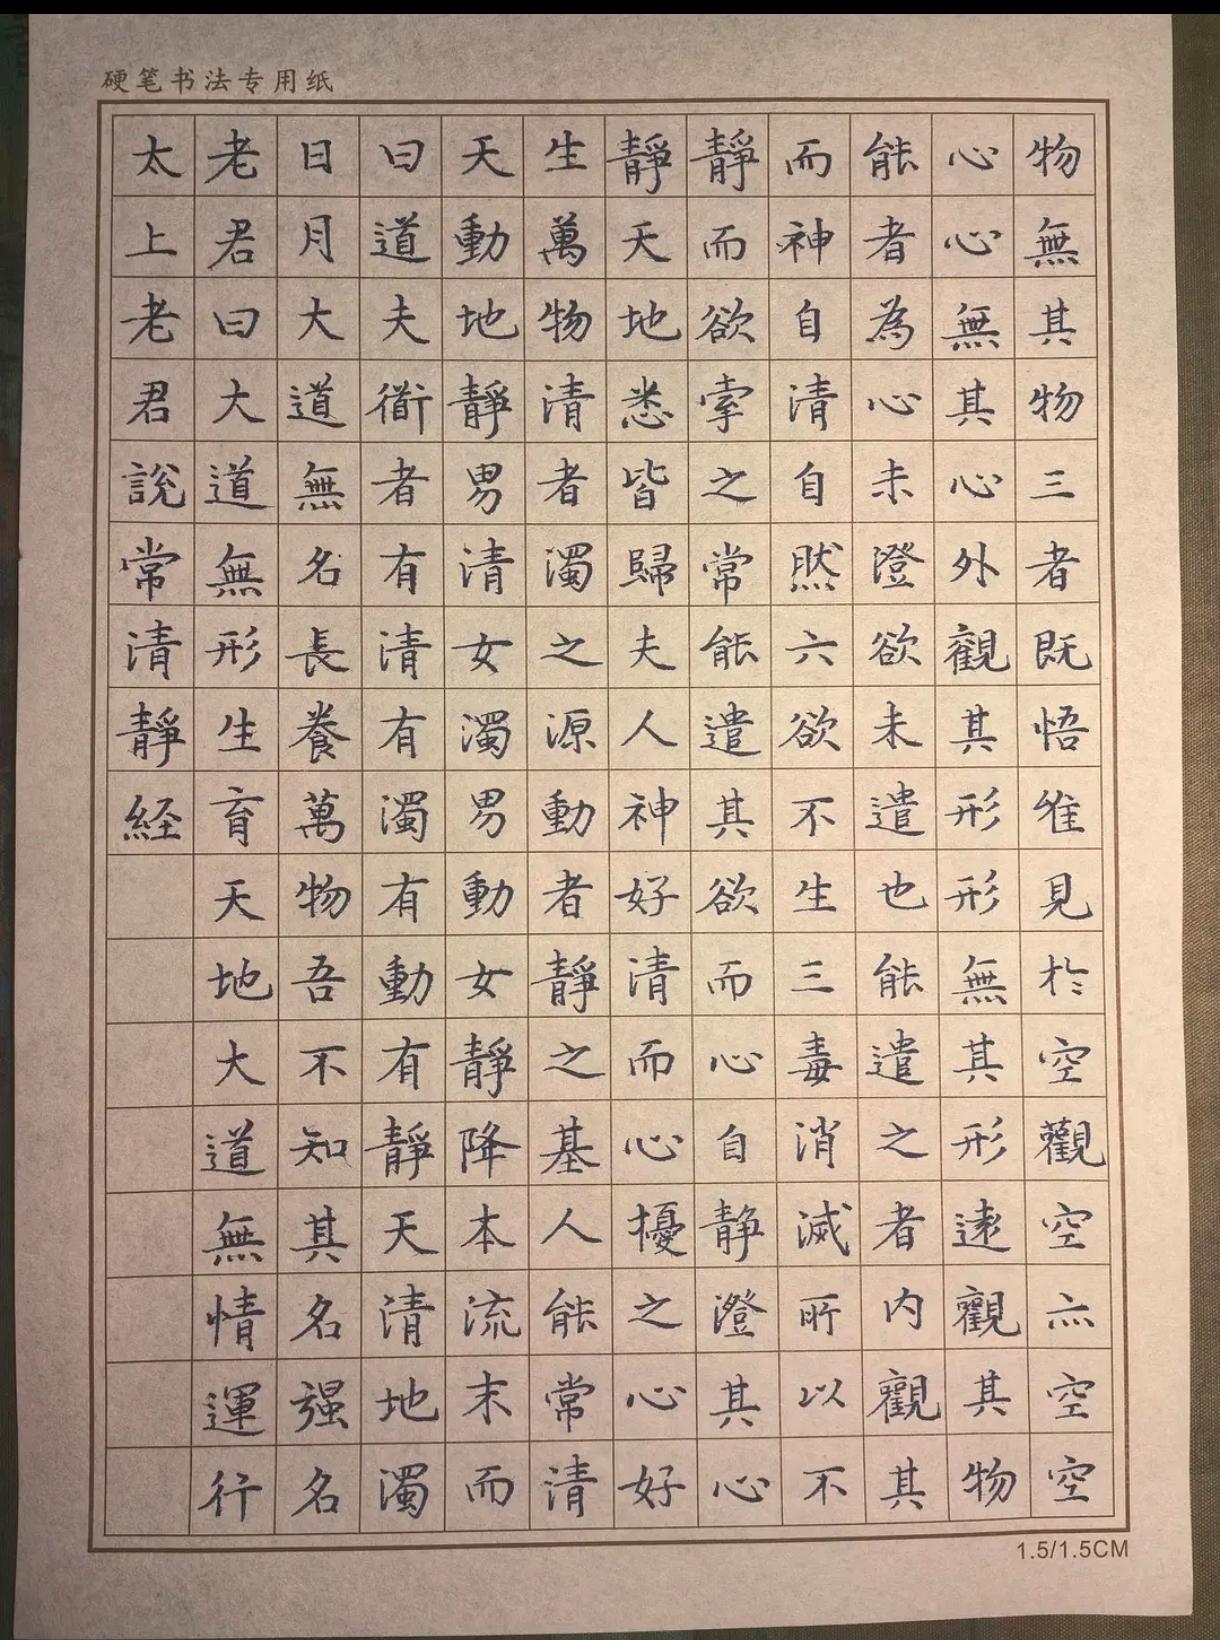 硬笔书法专用纸
太上老君說常清靜經
老君曰大道無形生育天地大道無情運行
日月大道無名長養萬物吾不知其名强名
曰道夫衜者有清有濁有動有靜天清地濁
天動地靜男清女濁男動女靜降本流末而
生萬物清者濁之源動者靜之基人能常清
靜天地悉皆歸夫人神好清而心擾之心好
靜而欲牽之常能遣其欲而心自静澄其心
而神自清自然六欲不生三毒消滅所以不
能者為心未澄欲未遣也能遣之者内觀其
心心無其心外觀其形形無其形遠觀其物
物無其物三者既悟唯見於空觀空亦空空
1.5/1.5CM